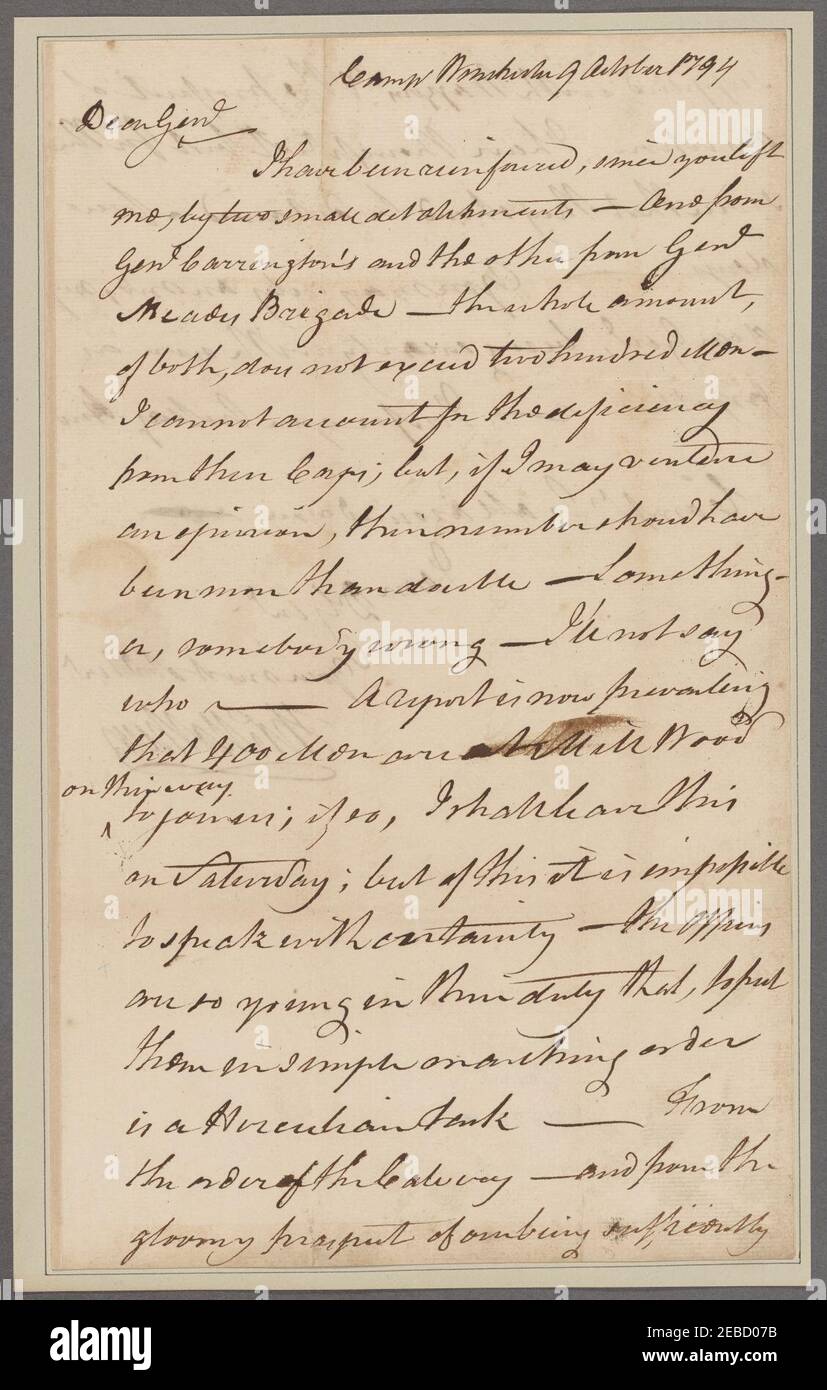 Camp Winchester 9 October 1794
Dear Genl
I have been reinforced, since you left
me, by two small detatchments — One from
Genl Carrington's and the other from Genl
Meades Brigade — the whole amount,
of both, does not exceed two hundred Men —
I cannot account for the deficiency
from their Corps; but, if I may venture
an opinion, their number shoud have
been more than double — Something
or, somebody wrong — I'll not say
who — A report is now prevailing
that 400 Men are at Mill Wood
on their way
to join us; if so, I shall leave this
on Saturday; but of this it is impossible
to speak with certainty — the officers
are so young in their duty that, to put
them in simple marching order
is a Herculian task — From
the order of the Calevary — and from the
gloomy prospect of our being sufficiently
alamy
alamy
Image ID: 2EBD07B
www.alamy.com